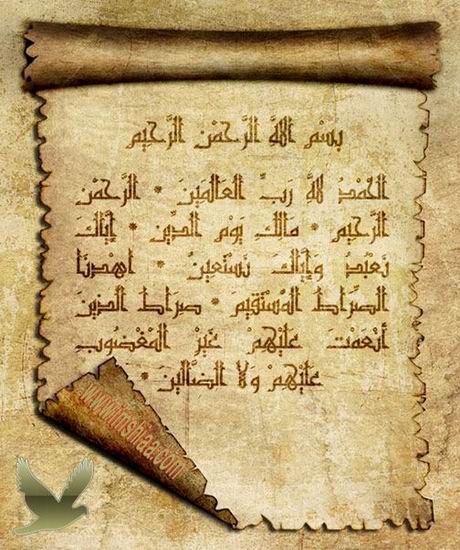 بِسْمِ اللهِ الرَّحْمٰنِ الرَّحِيمِ
الْحَمْدُ لِلّٰهِ رَبِّ الْعَالَمِينَ * الرَّحْمٰنِ
الرَّحِيمِ * مَالِكِ يَوْمِ الدِّينِ * إِيَّاكَ
نَعْبُدُ وَإِيَّاكَ نَسْتَعِينُ * اهْدِنَا
الصِّرَاطَ الْمُسْتَقِيمَ * صِرَاطَ الَّذِينَ
أَنْعَمْتَ عَلَيْهِمْ غَيْرِ الْمَغْضُوبِ
عَلَيْهِمْ وَلَا الضَّالِّينَ *